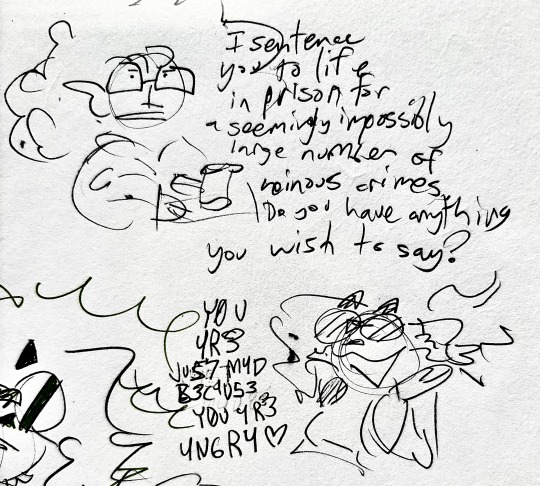 I sentence
you to life
in prison for
a seemingly impossibly
large number of
heinous crimes.
Do you have anything
you wish to say?
YOU
4R3
JU57 M4D
B3C4U53
YOU 4R3
4NGRY♡